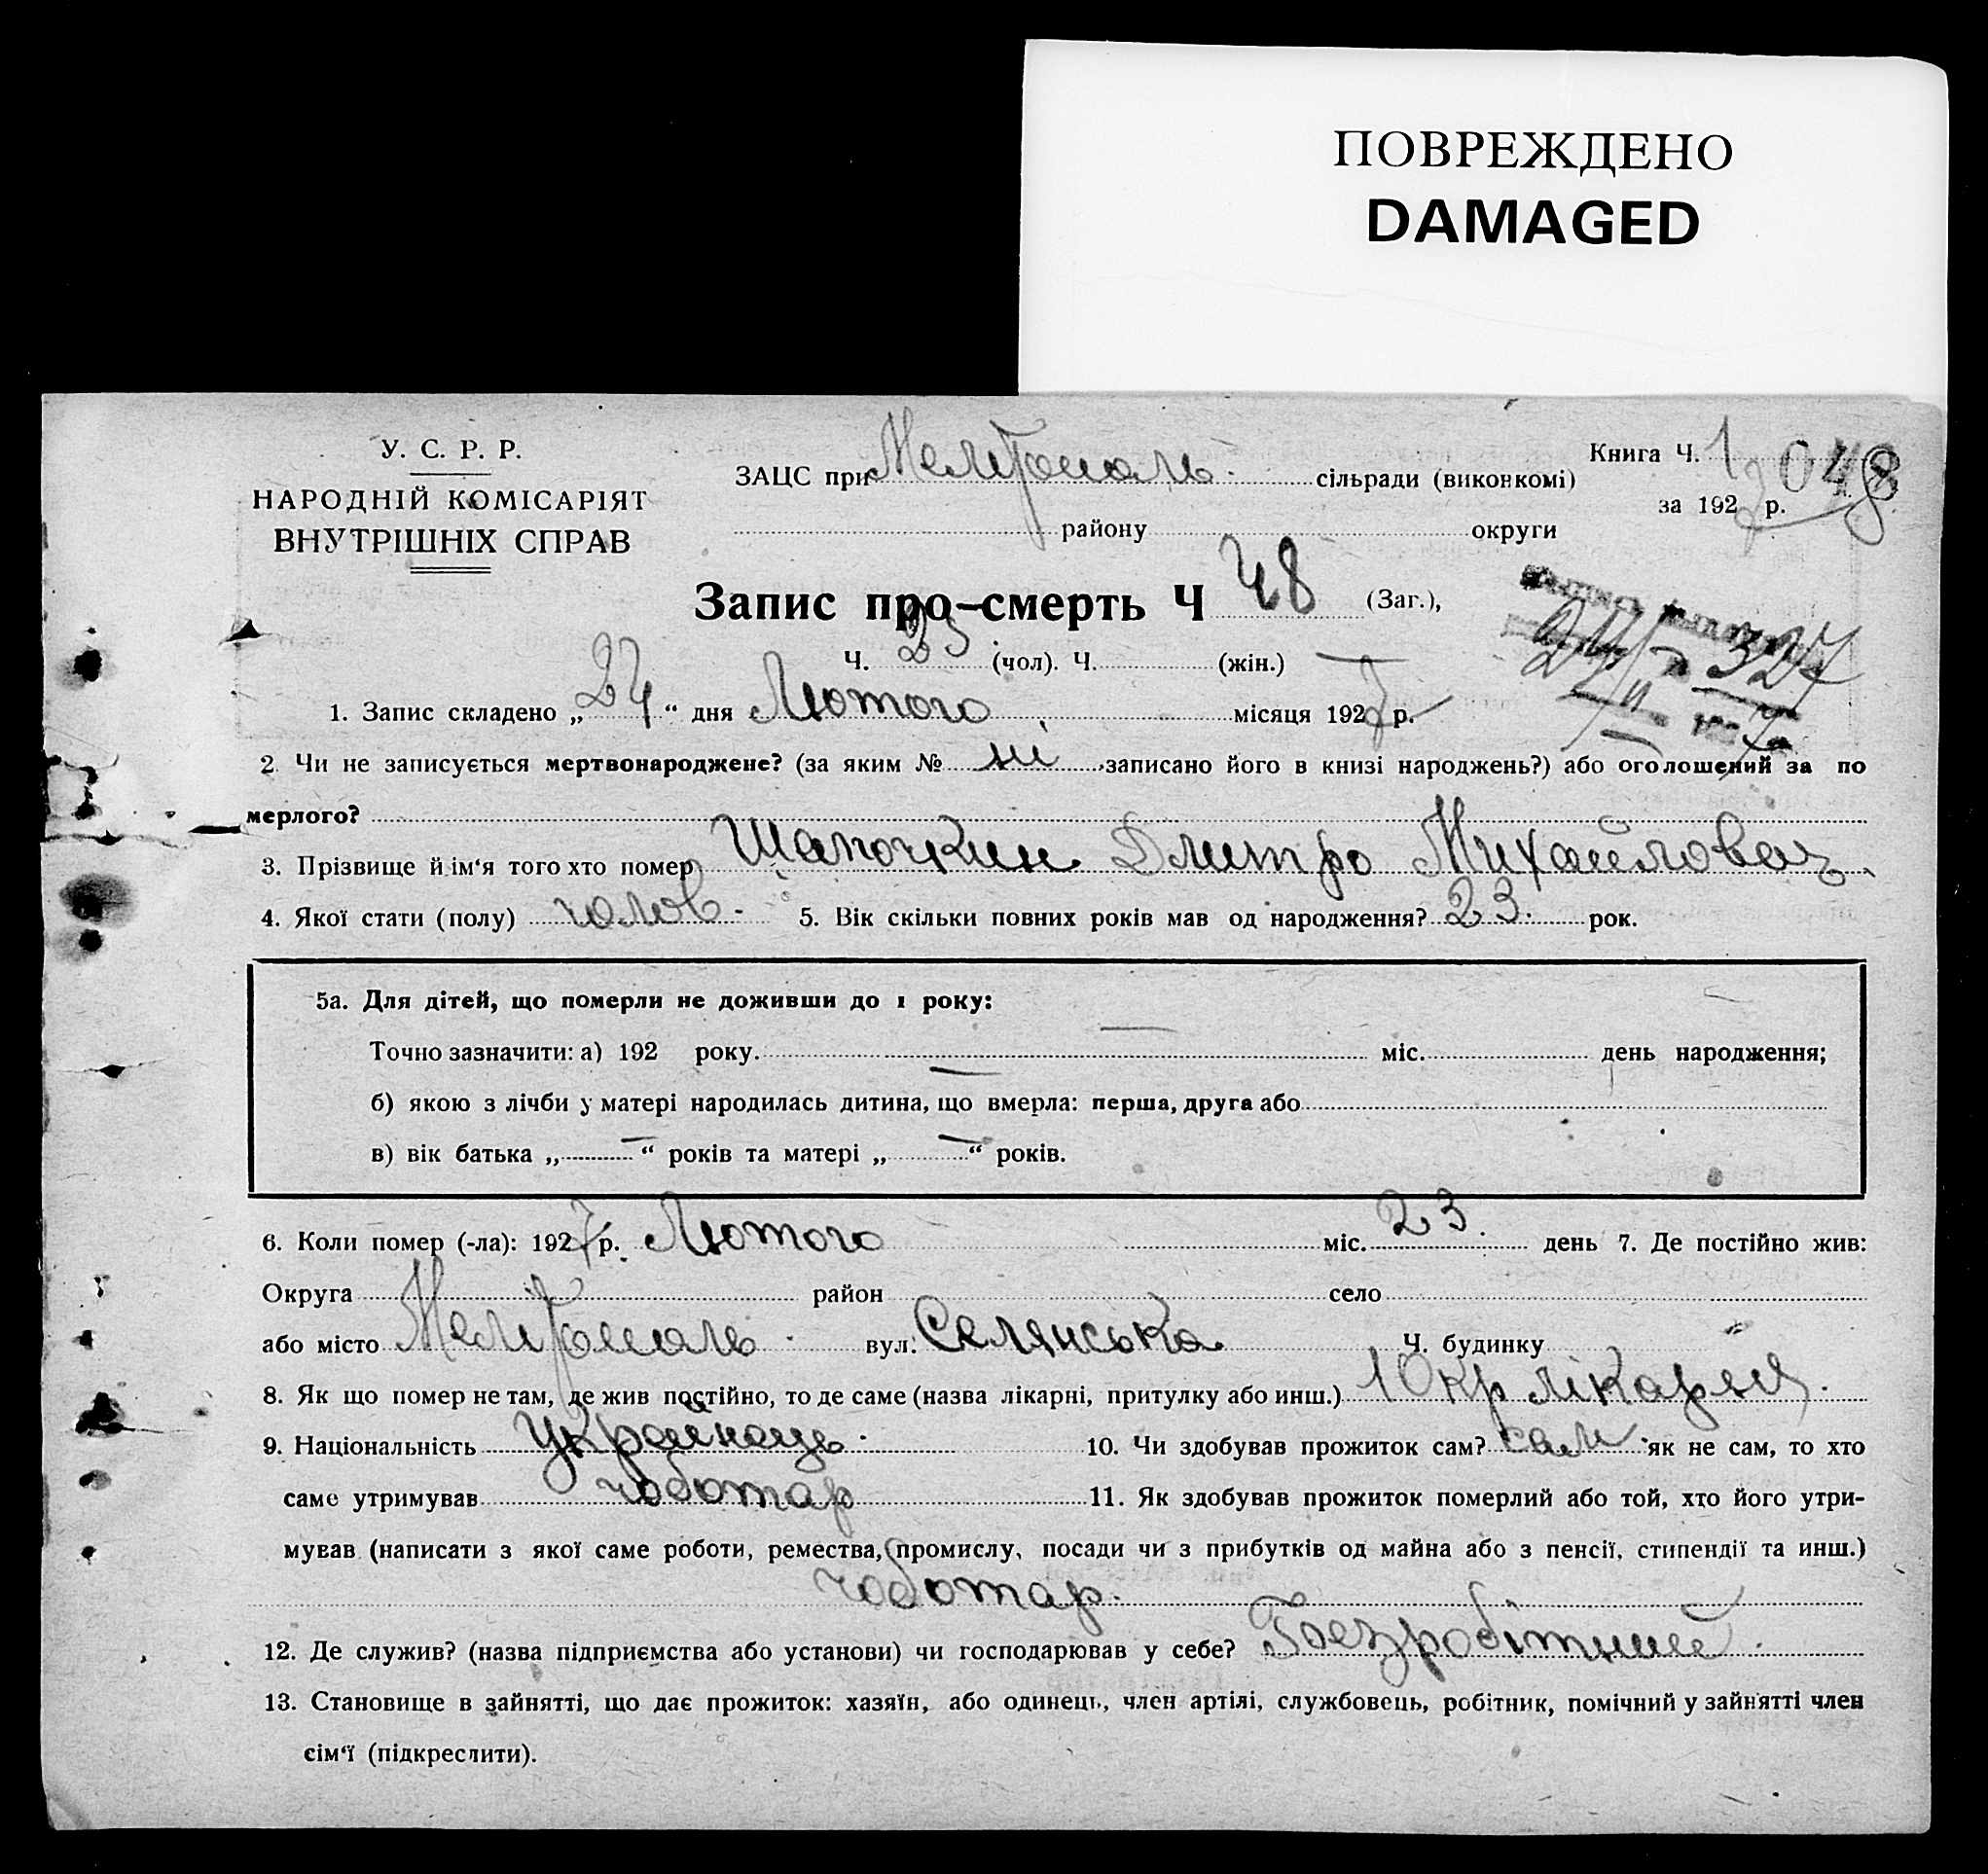 ПОВРЕЖДЕНО
DAMAGED
У. С. Р. Р.
НАРОДНІЙ КОМІСАРІЯТ
ВНУТРІШНІХ СПРАВ
ЗАЦС при Мелітополь. сільради (виконкомі)
району округи
Книга Ч. 1
048
за 1927 р.
Запис про-смерть Ч 48 (Заг.),
Ч. 23 (чол). Ч. (жін.) —
24/II 327
7
1. Запис складено „24“ дня Лютого місяця 1927 р.
2 Чи не записується мертвонароджене? (за яким № ні записано його в книзі народжень?) або оголошений за по
мерлого?
3. Прізвище й ім‘я того хто помер Шапочкин Дмитро Михайлович
4. Якої стати (полу) чолов. 5. Вік скільки повних років мав од народження? 23. рок.
5а. Для дітей, що померли не доживши до 1 року:
Точно зазначити: а) 192 року. — міс. день народження;
б) якою з лічби у матері народилась дитина, що вмерла: перша, друга або
в) вік батька „—“ років та матері „—“ років.
6. Коли помер (-ла): 1927 р. Лютого міс. 23. день 7. Де постійно жив:
Округа район село
або місто Мелітополь. вул. Селянська Ч. будинку
8. Як що помер не там, де жив постійно, то де саме (назва лікарні, притулку або инш.) 1 Окр лікарня.
9. Національність Українець. 10. Чи здобував прожиток сам? сам як не сам, то хто
саме утримував чоботар 11. Як здобував прожиток померлий або той, хто його утри-
мував (написати з якої саме роботи, ремества, промислу, посади чи з прибутків од майна або з пенсії, стипендії та инш.)
чоботар.
12. Де служив? (назва підприємства або установи) чи господарював у себе? Безробітний.
13. Становище в зайнятті, що дає прожиток: хазяїн, або одинець, член артілі, службовець, робітник, помічний у зайнятті член
сім‘ї (підкреслити).